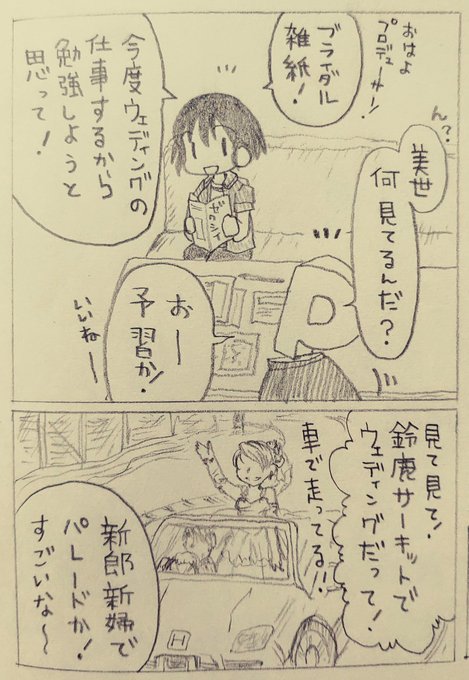 おはよ
プロデューサー!
ん?
美世
何見てるんだ?
ブライダル
雑紙!
今度ウェディングの
仕事するから
勉強しようと
思って!
ゼクシイ
P
おー
予習か!
いいねー
見て見て!
鈴鹿サーキットで
ウェディングだって!
車で走ってる!!
新郎新婦で
パレードか!
すごいな〜
H